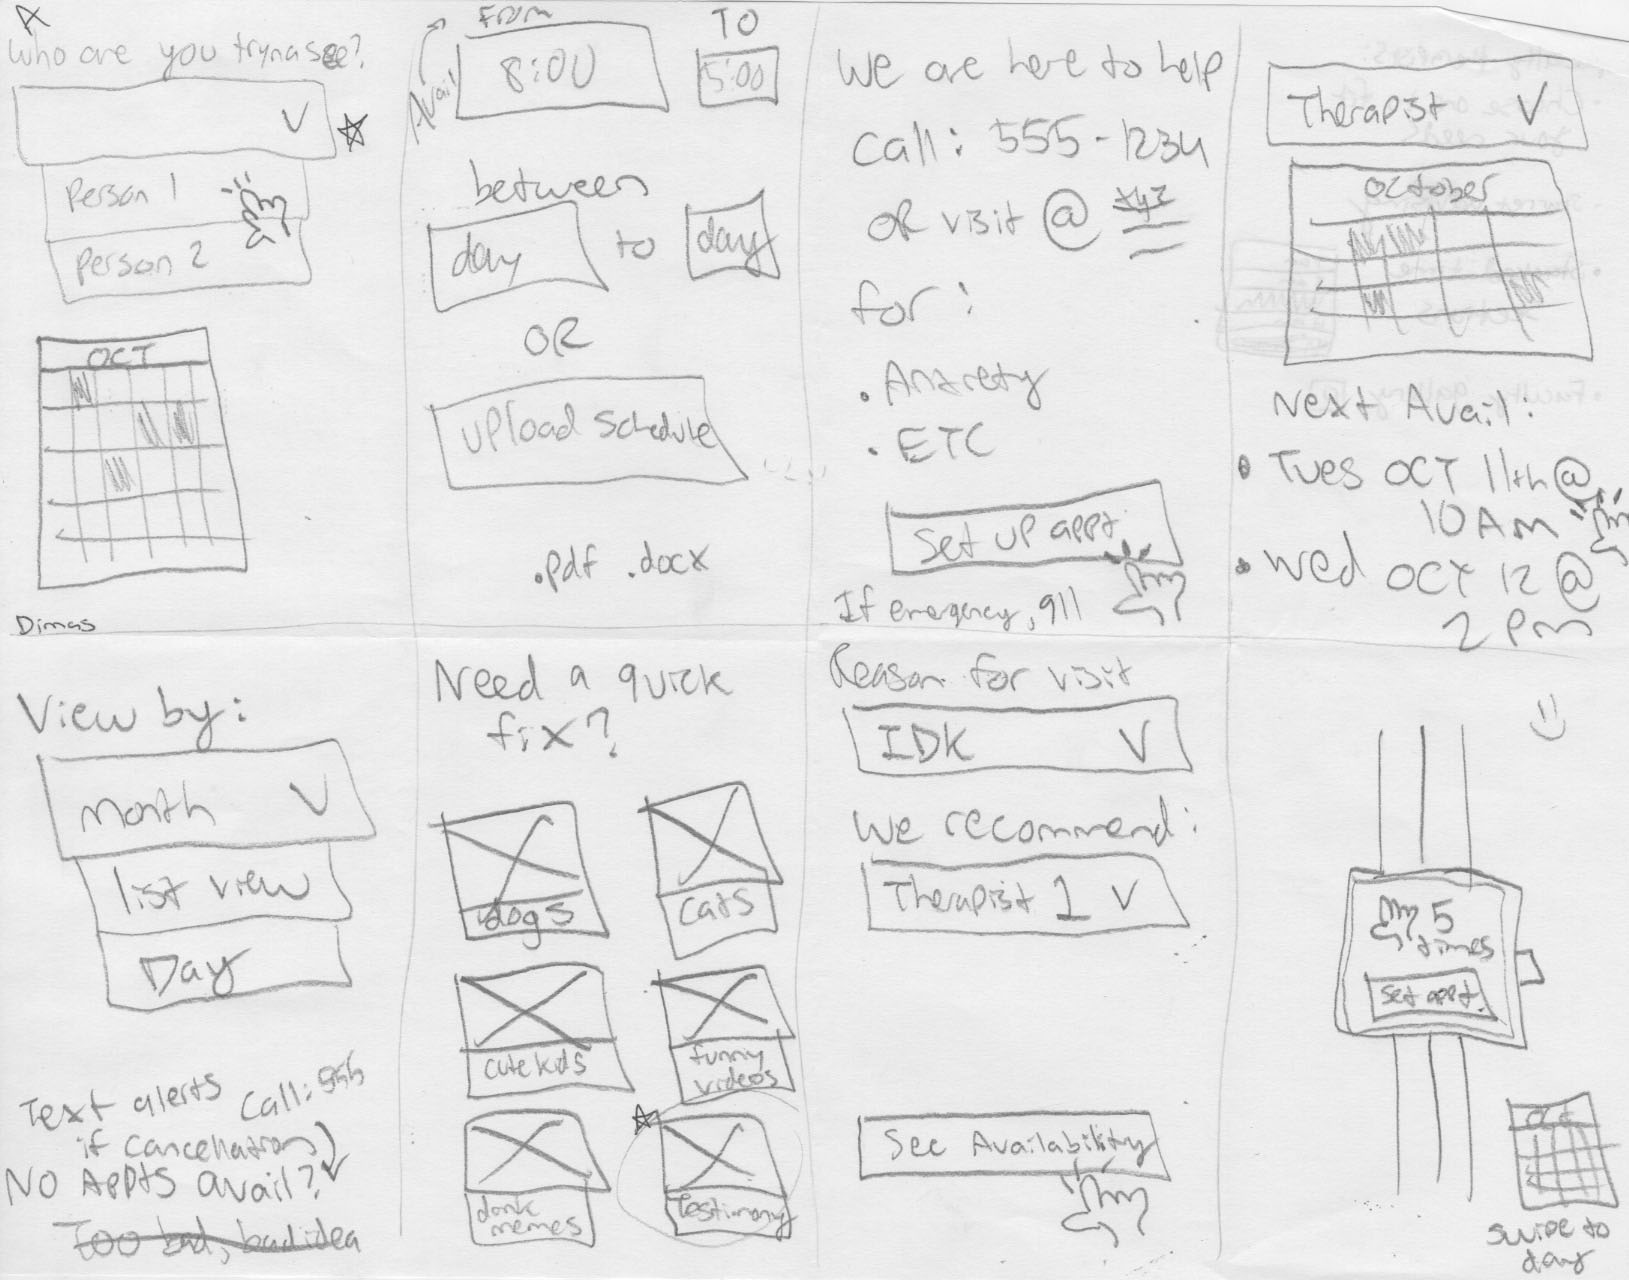 A
Who are you tryna see?
V
Person 1
Person 2
OCT
Dimas
Avail
From
TO
8:00
5:00
between
day
to
day
OR
upload schedule
.pdf .docx
We are here to help
Call: 555-1234
OR visit @ xyz
for:
• Anxiety
• ETC
Set up appt.
If emergency, 911
Therapist V
October
Next Avail:
• Tues OCT 11th @
10 AM
• Wed OCT 12 @
2 PM
View by:
Month V
list view
Day
Text alerts
if cancellation
Call: 555
NO Appts avail?
Too bad, bad idea
Need a quick
fix?
dogs
cats
cute kids
funny
videos
dank
memes
Testimony
Reason for visit
IDK V
We recommend:
Therapist 1 V
See Availability
5
times
Set appt.
OCT
swipe to
day